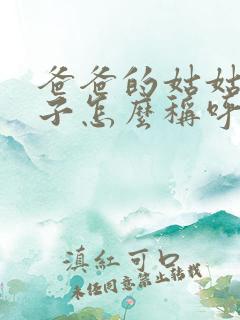 爸爸的姑姑
子怎麼稱呼
滇紅可口
未经同意禁止转载